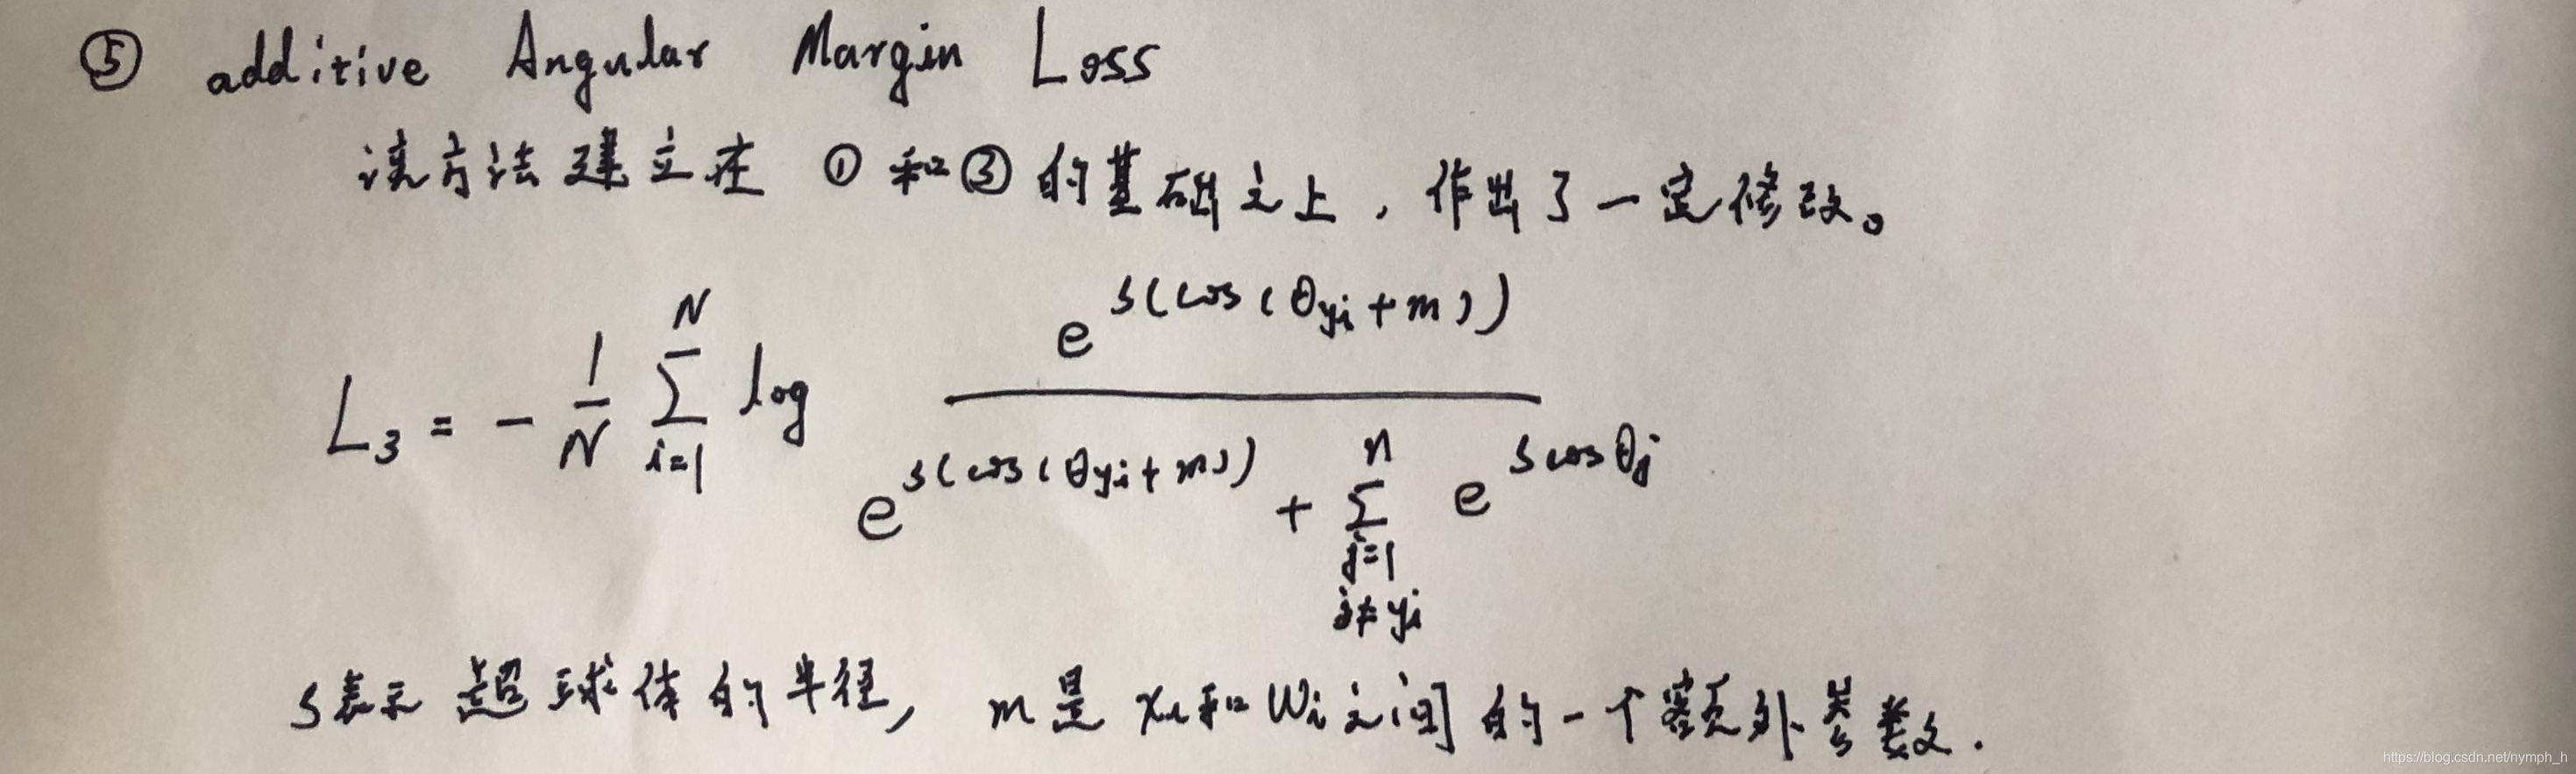 ⑤ additive Angular Margin Loss
该方法建立在 ① 和 ③ 的基础之上，作出了一定修改。
L₃ = - 1/N ∑_{i=1}^{N} log e^{s(cos(θ_{yi}+m))} / (e^{s(cos(θ_{yi}+m))} + ∑_{j=1, j≠yi}^{n} e^{s cosθ_j})
s表示超球体的半径, m是 x_i 和 W_i 之间的一个额外参数.
https://blog.csdn.net/nymph_h